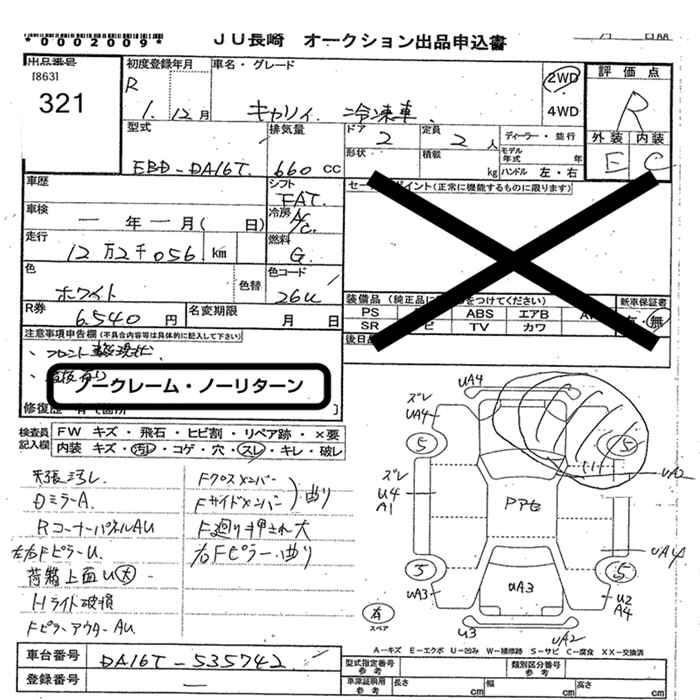 *0002009*
JU長崎 オークション出品申込書
出品番号
[863]
321
初度登録年月
R
1. 12月
車名・グレード
キャリイ. 冷凍車.
2WD
4WD
評価点
R
外装 内装
E C
型式
EBD-DA16T.
排気量
660 CC
ドア 2
定員 2 人
ディーラー・並行
形状
積載 kg
モデル年式 年
ハンドル 左・右
車歴
シフト
FAT.
セールスポイント(正常に機能するものに限ります)
車検
一 年 一 月( 日)
冷房
A/C.
走行
12万2千056 km
燃料
G.
色
ホワイト
色替
色コード
26U
装備品(純正品に をつけてください)
新車保証書
有・無
PS ABS エアB
SR TV カワ
後日品
R券
6.540円
名変期限
月 日
注意事項申告欄(不具合内容等は具体的に記入して下さい)
、フロント事故現状
ノークレーム・ノーリターン
修復歴 有(箇所 )
検査員記入欄
FW キズ・飛石・ヒビ割・リペア跡・×要
内装 キズ・汚レ・コゲ・穴・スレ・キレ・破レ
天張汚レ.
DミラーA.
RコーナーパネルAU
左右FピラーU.
荷箱上面U大
Hライト破損
FピラーアウターAU.
Fクロスメンバー
Fサイドメンバー
曲り
F廻り押され大
右Fピラー曲り
UA4
ズレ
UA4
5
5
UA2
ズレ
U4
A1
Pアセ
UA4
5
5
UA3
UA3
U2
A4
U3
UA2
有
スペア
A-キズ E-エクボ U-凹み W-補修跡 S-サビ C-腐食 XX-交換済
車台番号
DA16T-535742
登録番号
一
型式指定番号
参考
類別区分番号
参考
車庫証明用
参考
長さ cm
幅 cm
高さ cm